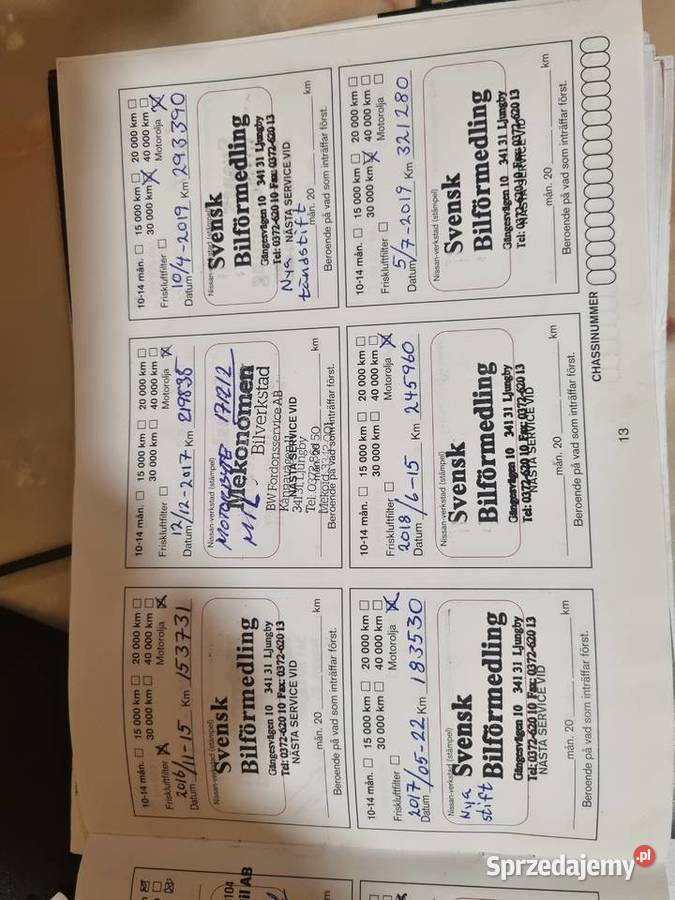 104
il AB
10-14 mån. 15 000 km 20 000 km
30 000 km 40 000 km
Friskluftfilter Motorolja
Datum 2016/11-15 Km 153731
Nissan-verkstad (stämpel)
Svensk
Bilförmedling
Gängesvägen 10 341 31 Ljungby
Tel: 0372-620 10 Fax: 0372-620 13
NÄSTA SERVICE VID
mån. 20 km
Beroende på vad som inträffar först.
10-14 mån. 15 000 km 20 000 km
30 000 km 40 000 km
Friskluftfilter Motorolja
Datum 12/12-2017 Km 219838
Nissan-verkstad (stämpel)
171212
Mekonomen
Bilverkstad
BW Fordonsservice AB
341 31 Ljungby
NÄSTA SERVICE VID
mån. 20 km
Beroende på vad som inträffar först.
10-14 mån. 15 000 km 20 000 km
30 000 km 40 000 km
Friskluftfilter Motorolja
Datum 10/4-2019 Km 293390
Nissan-verkstad (stämpel)
Svensk
Bilförmedling
Gängesvägen 10 341 31 Ljungby
Tel: 0372-620 10 Fax: 0372-620 13
Nya NÄSTA SERVICE VID
tändstift mån. 20 km
Beroende på vad som inträffar först.
10-14 mån. 15 000 km 20 000 km
30 000 km 40 000 km
Friskluftfilter Motorolja
Datum 2017/05-22 Km 183530
Nissan-verkstad (stämpel)
Nya Svensk
stift Bilförmedling
Gängesvägen 10 341 31 Ljungby
Tel: 0372-620 10 Fax: 0372-620 13
NÄSTA SERVICE VID
mån. 20 km
Beroende på vad som inträffar först.
10-14 mån. 15 000 km 20 000 km
30 000 km 40 000 km
Friskluftfilter Motorolja
Datum 2018/6-15 Km 245960
Nissan-verkstad (stämpel)
Svensk
Bilförmedling
Gängesvägen 10 341 31 Ljungby
Tel: 0372-620 10 Fax: 0372-620 13
NÄSTA SERVICE VID
mån. 20 km
Beroende på vad som inträffar först.
10-14 mån. 15 000 km 20 000 km
30 000 km 40 000 km
Friskluftfilter Motorolja
Datum 5/7-2019 Km 321280
Nissan-verkstad (stämpel)
Svensk
Bilförmedling
Gängesvägen 10 341 31 Ljungby
Tel: 0372-620 10 Fax: 0372-620 13
NÄSTA SERVICE VID
mån. 20 km
Beroende på vad som inträffar först.
CHASSINUMMER
13
Sprzedajemy.pl